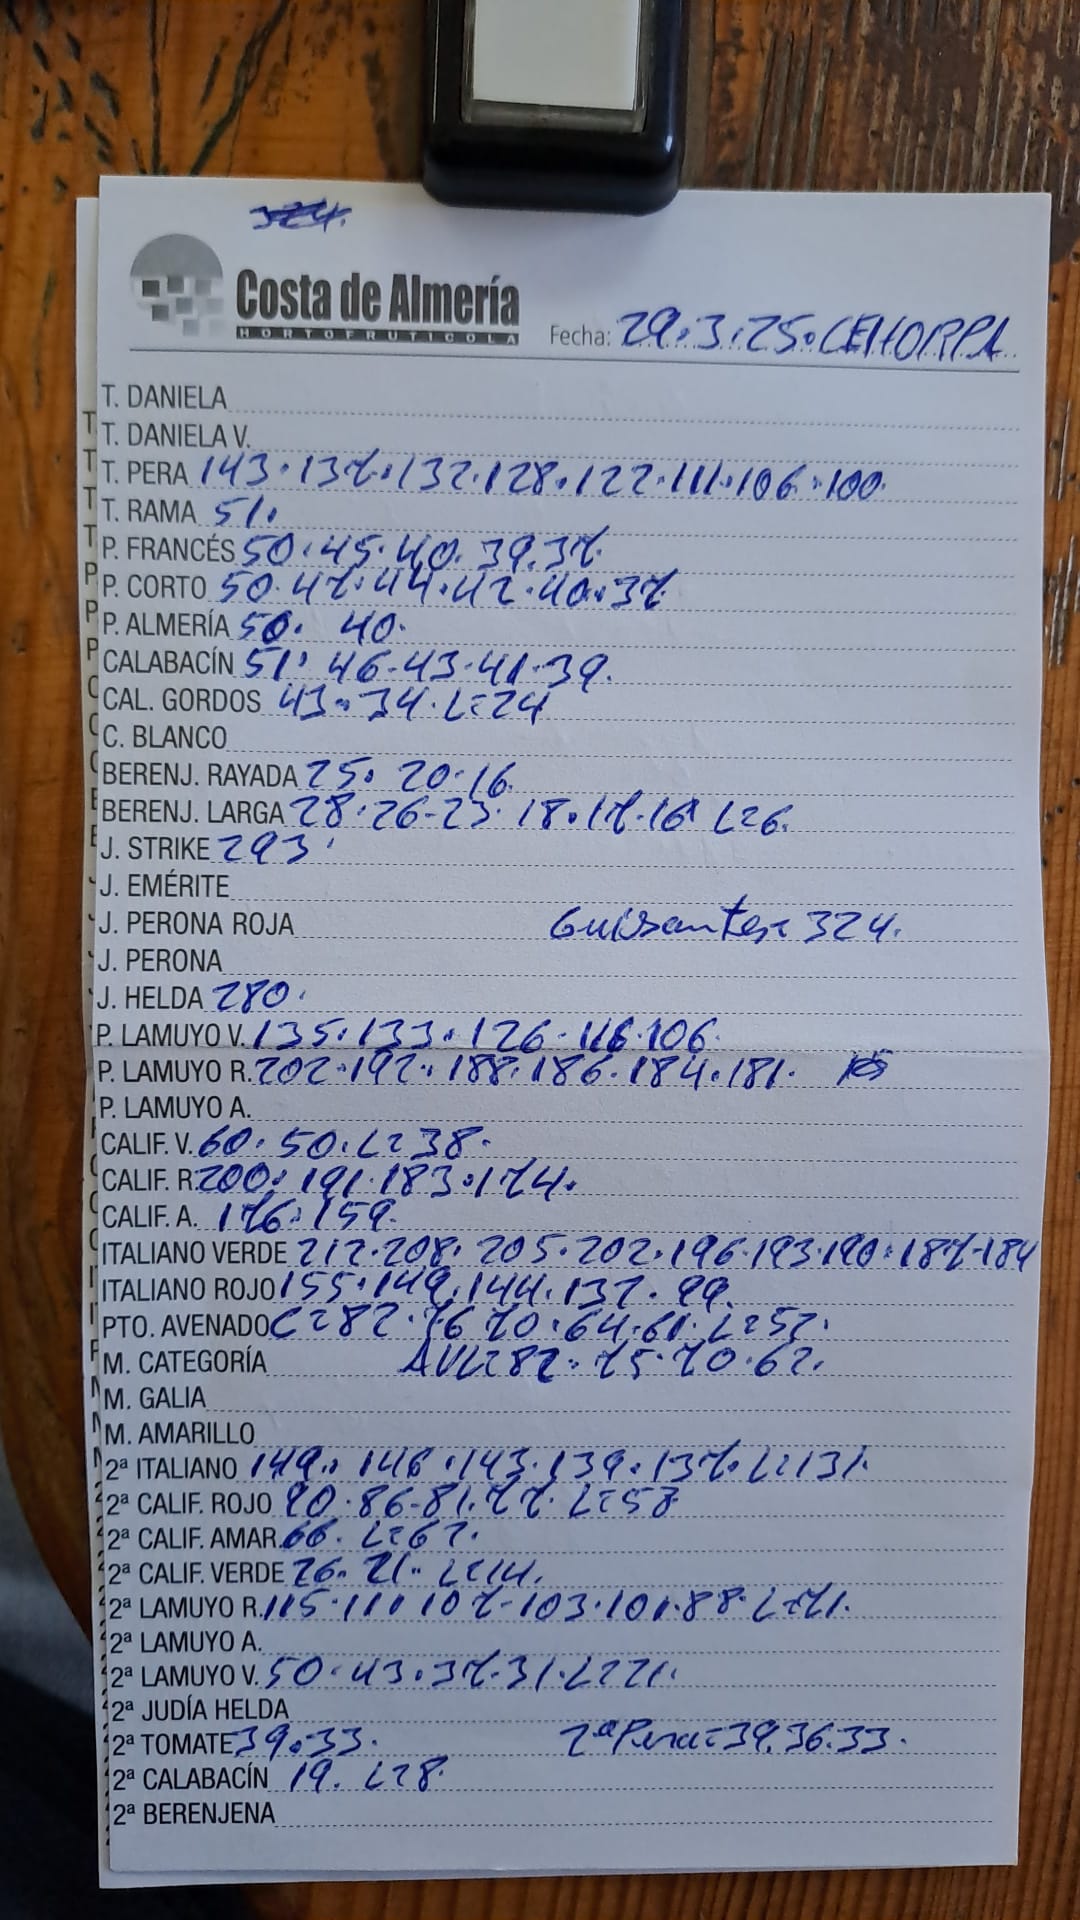 324.
Costa de Almería
HORTOFRUTICOLA
Fecha: 29.3.25. CEHORPA
T. DANIELA
T. DANIELA V.
T. PERA 143.137.132.128.122.111.106.100.
T. RAMA 51.
P. FRANCÉS 50.45.40.39.37.
P. CORTO 50.47.44.42.40.37.
P. ALMERÍA 50. 40.
CALABACÍN 51. 46-43.41.39.
CAL. GORDOS 43. 34. L=24
C. BLANCO
BERENJ. RAYADA 25. 20.16.
BERENJ. LARGA 28.26-23. 18.17.16. L=6.
J. STRIKE 293.
J. EMÉRITE
J. PERONA ROJA Guisantes= 324.
J. PERONA
J. HELDA 280.
P. LAMUYO V. 135.133.126.116.106.
P. LAMUYO R. 202.192.188.186.184.181.
P. LAMUYO A.
CALIF. V. 60.50.L=38.
CALIF. R. 200.191.183.174.
CALIF. A. 176.159.
ITALIANO VERDE 212.208.205.202.196.193.190.187-184
ITALIANO ROJO 155.149.144.137.99.
PTO. AVENADO C=82.76 70.64.61.L=52.
M. CATEGORÍA AVL=82.75.70.62.
M. GALIA
M. AMARILLO
2ª ITALIANO 149. 146.143.139.137. L=131.
2ª CALIF. ROJO 90.86-81.77. L=58
2ª CALIF. AMAR. 66. L=62.
2ª CALIF. VERDE 26. 21. L=14.
2ª LAMUYO R. 115.111.107-103.101.88. L=71.
2ª LAMUYO A.
2ª LAMUYO V. 50.43.37.31.L=21.
2ª JUDÍA HELDA
2ª TOMATE 39.33. 2ª Pera=39.36.33.
2ª CALABACÍN 19. L=8.
2ª BERENJENA